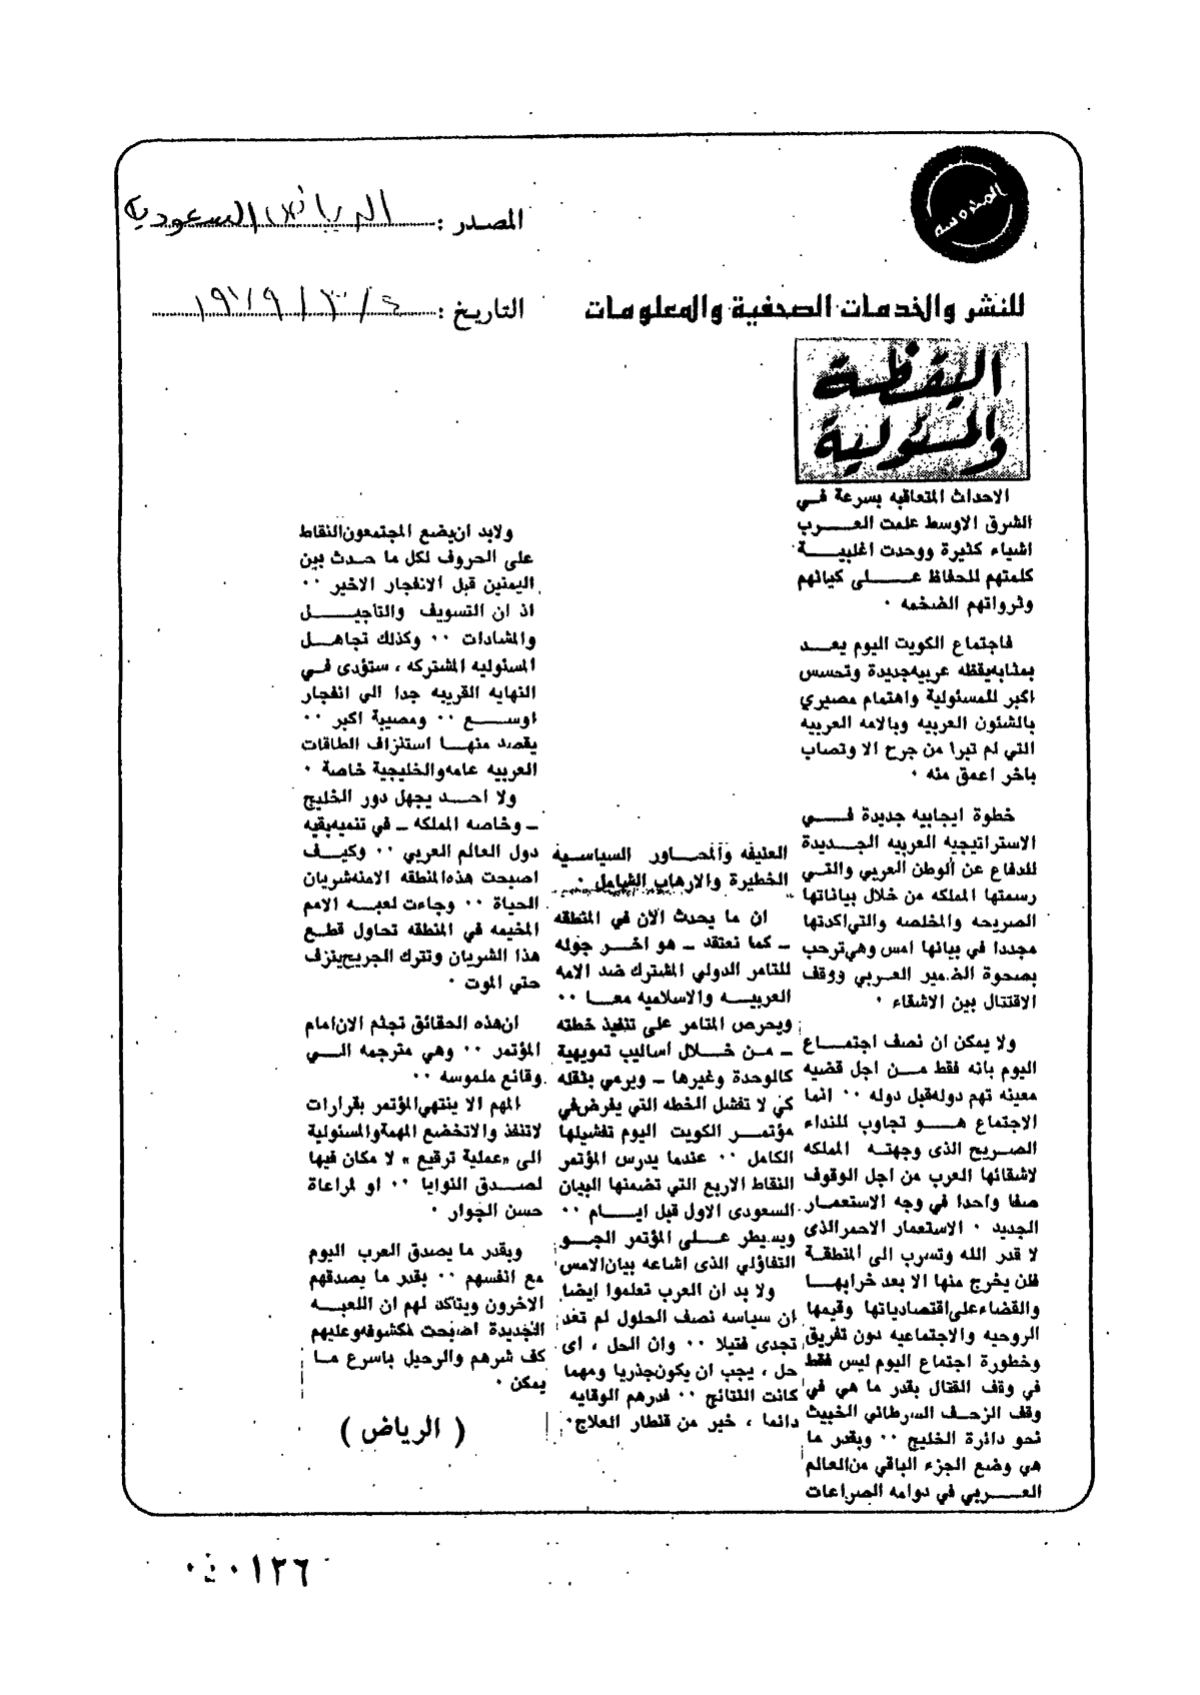 المحروسة
المصدر : الرياض السعودية
للنشر والخدمات الصحفية والمعلومات
التاريخ : ٤ / ٣ / ١٩٧٩
اليقظة
والمسئولية
الاحداث المتعاقبه بسرعة فى
الشرق الاوسط علمت العرب
اشياء كثيرة ووحدت اغلبية
كلمتهم للحفاظ على كيانهم
وثرواتهم الضخمه ٠
فاجتماع الكويت اليوم يعد
بمثابه يقظه عربيه جديدة وتحسس
اكبر للمسئولية واهتمام مصيري
بالشئون العربيه وبالامه العربيه
التي لم تبرا من جرح الا وتصاب
باخر اعمق منه ٠
خطوة ايجابيه جديدة فى
الاستراتيجيه العربيه الجديدة
للدفاع عن الوطن العربي والتى
رسمتها المملكه من خلال بياناتها
الصريحه والمخلصه والتي اكدتها
مجددا في بيانها امس وهي ترحب
بصحوة الضمير العربي ووقف
الاقتتال بين الاشقاء ٠
ولا يمكن ان نصف اجتماع
اليوم بانه فقط من اجل قضيه
معينه تهم دوله قبل دوله ٠٠ انما
الاجتماع هو تجاوب للنداء
الصريح الذى وجهته المملكه
لاشقائها العرب من اجل الوقوف
صفا واحدا في وجه الاستعمار
الجديد ٠ الاستعمار الاحمر الذى
لا قدر الله وتسرب الى المنطقة
فلن يخرج منها الا بعد خرابها
والقضاء على اقتصادياتها وقيمها
الروحيه والاجتماعيه دون تفريق
وخطورة اجتماع اليوم ليس فقط
في وقف القتال بقدر ما هي في
وقف الزحف السرطاني الخبيث
نحو دائرة الخليج ٠٠ وبقدر ما
هي وضع الجزء الباقي من العالم
العربي في دوامه الصراعات
العنيفه والمحاور السياسية
الخطيرة والارهاب الشامل ٠
ان ما يحدث الان في المنطقه
ـ كما نعتقد ـ هو اخر جوله
للتامر الدولي المشترك ضد الامه
العربيه والاسلاميه معا ٠٠
ويحرص المتامر على تنفيذ خطته
ـ من خلال اساليب تمويهية
كالوحدة وغيرها ـ ويرمي بثقله
كي لا تفشل الخطه التي يفرض في
مؤتمر الكويت اليوم تفشيلها
الكامل ٠٠ عندما يدرس المؤتمر
النقاط الاربع التي تضمنها البيان
السعودى الاول قبل ايام ٠٠
ويسيطر على المؤتمر الجو
التفاؤلي الذى اشاعه بيان الامس
ولا بد ان العرب تعلموا ايضا
ان سياسه نصف الحلول لم تعد
تجدى فتيلا ٠٠ وان الحل ، اى
حل ، يجب ان يكون جذريا ومهما
كانت النتائج ٠٠ فدرهم الوقايه
دائما ، خير من قنطار العلاج ٠
ولابد ان يضع المجتمعون النقاط
على الحروف لكل ما حدث بين
اليمنين قبل الانفجار الاخير ٠٠
اذ ان التسويف والتاجيل
والمشادات ٠٠ وكذلك تجاهل
المسئوليه المشتركه ، ستؤدى في
النهايه القريبه جدا الي انفجار
اوسع ٠٠ ومصيبة اكبر ٠٠
يقصد منها استنزاف الطاقات
العربيه عامه والخليجية خاصة ٠
ولا احد يجهل دور الخليج
ـ وخاصه المملكه ـ في تنميه بقيه
دول العالم العربي ٠٠ وكيف
اصبحت هذه المنطقه الامنه شريان
الحياة ٠٠ وجاءت لعبه الامم
المخيمه في المنطقه تحاول قطع
هذا الشريان وتترك الجريح ينزف
حتي الموت ٠
ان هذه الحقائق تجثم الان امام
المؤتمر ٠٠ وهي مترجمه الى
وقائع ملموسه ٠٠
المهم الا ينتهي المؤتمر بقرارات
لا تنفذ والا تخضع المهمة والمسئولية
الى «عملية ترقيع» لا مكان فيها
لصدق النوايا ٠٠ او لمراعاة
حسن الجوار ٠
وبقدر ما يصدق العرب اليوم
مع انفسهم ٠٠ بقدر ما يصدقهم
الاخرون ويتاكد لهم ان اللعبه
الجديدة اضحت مكشوفه وعليهم
كف شرهم والرحيل باسرع ما
يمكن ٠
( الرياض )
٠٤٠١٢٦